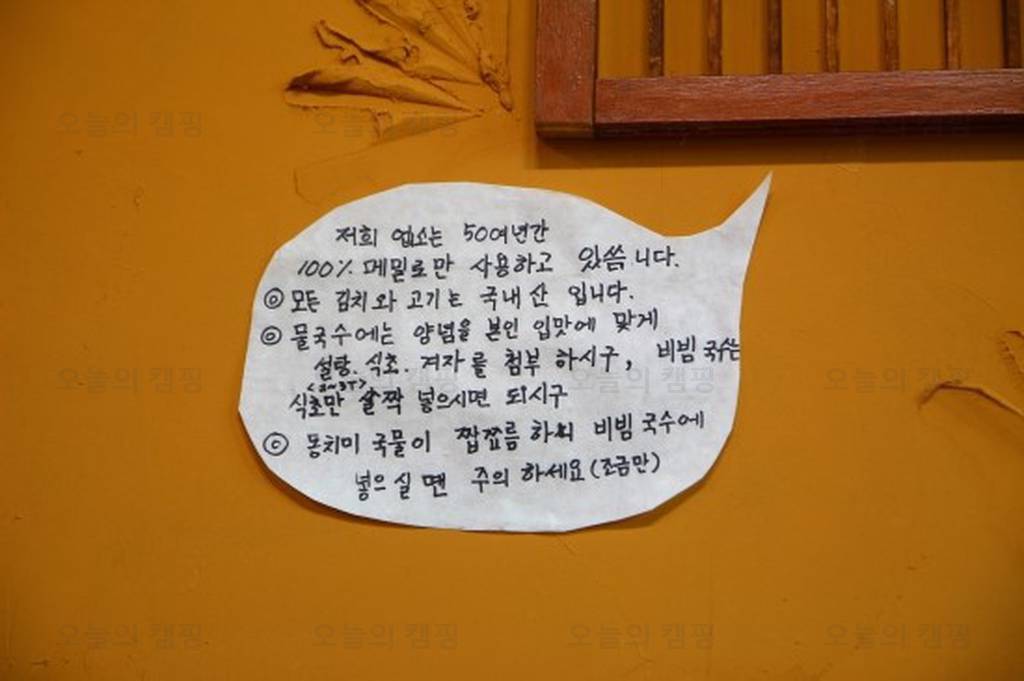 저희 업소는 50여년간
100% 메밀로만 사용하고 있씀니다.
◎ 모든 김치와 고기는 국내산 입니다.
◎ 물국수에는 양념을 본인 입맛에 맞게
설탕. 식초. 겨자를 첨부 하시구, 비빔국수는
<2~3T>
식초만 살짝 넣으시면 되시구
◎ 동치미 국물이 짭쪼름 하니 비빔국수에
넣으실땐 주의하세요(조금만)
오늘의 캠핑 오늘의 캠핑 오늘의 캠핑 오늘의 캠핑
오늘의 캠핑 오늘의 캠핑 오늘의 캠핑 오늘의 캠핑
오늘의 캠핑 오늘의 캠핑 오늘의 캠핑 오늘의 캠핑